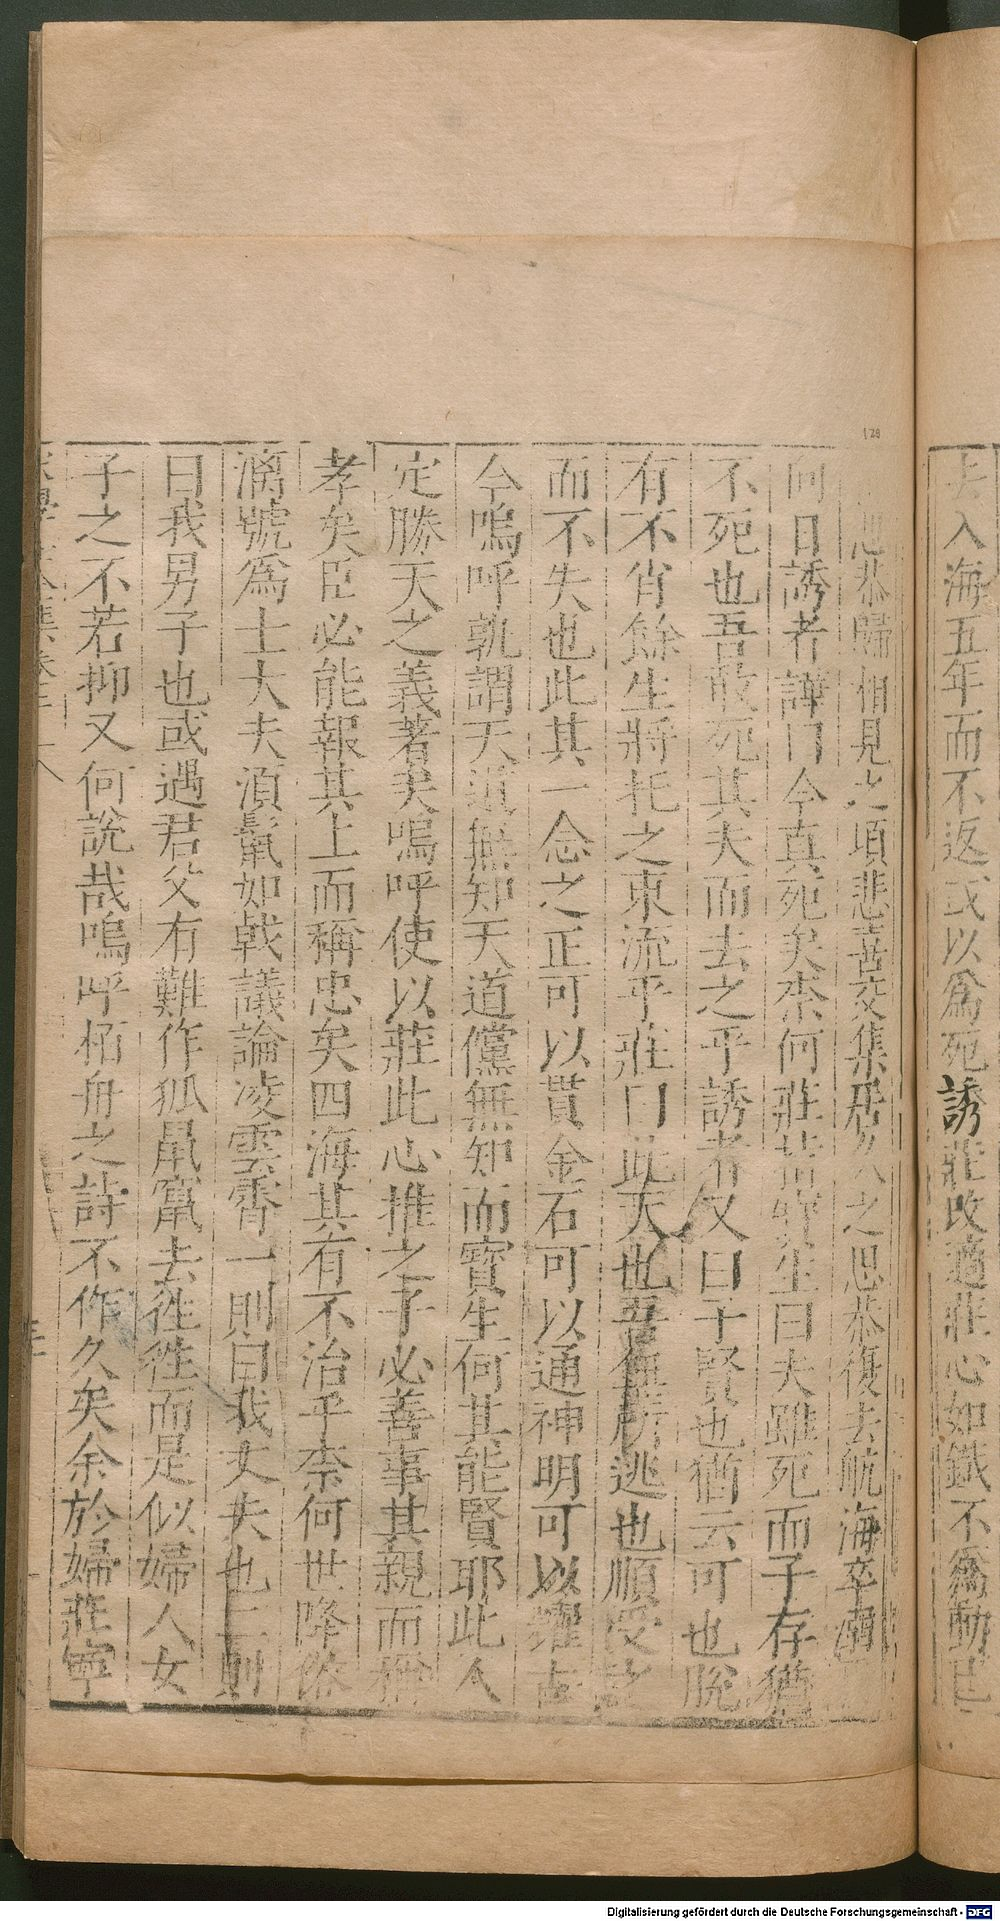 去入海五年而不返或以爲死誘莊改適莊心如鐵不爲動已
思恭歸相見之頃悲喜交集居久之思恭復去航海卒溺
何日誘者譁曰今真死矣柰何莊昔郭生曰夫雖死而子存猶
不死也吾敢死其夫而去之乎誘者又曰子賢也猶云可也脫
有不肖餘生將托之東流乎莊曰此天也吾無所逃也順受
而不失也此其一念之正可以貫金石可以通神明可以耀古
今嗚呼孰謂天道無知天道儻無知而寳生何其能賢耶此人
定勝天之義著矣嗚呼使以莊此心推之子必善事其親而稱
孝矣臣必能報其上而稱忠矣四海其有不治乎柰何世降俗
漓號爲士大夫湏鬣如戟議論凌雲霄一則曰我丈夫也二則
曰我男子也或遇君父有難作狐鼠竄去徃徃而是似婦人女
子之不若抑又何說哉嗚呼栢舟之詩不作久矣余於婦莊寧
集卷
128
Digitalisierung gefördert durch die Deutsche Forschungsgemeinschaft - DFG